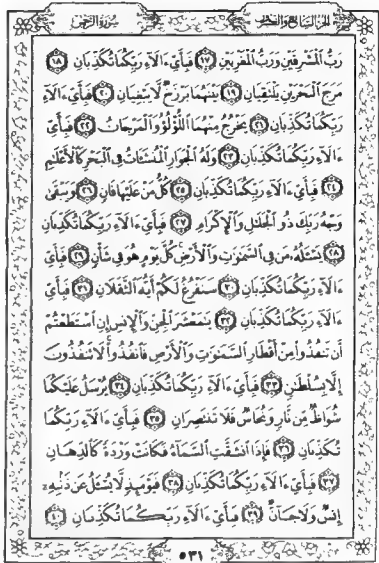 الجزء السابع والعشرون
سورة الرحمن
رَبُّ ٱلْمَشْرِقَيْنِ وَرَبُّ ٱلْمَغْرِبَيْنِ ١٧ فَبِأَيِّ ءَالَآءِ رَبِّكُمَا تُكَذِّبَانِ ١٨
مَرَجَ ٱلْبَحْرَيْنِ يَلْتَقِيَانِ ١٩ بَيْنَهُمَا بَرْزَخٌ لَّا يَبْغِيَانِ ٢٠ فَبِأَيِّ ءَالَآءِ
رَبِّكُمَا تُكَذِّبَانِ ٢١ يَخْرُجُ مِنْهُمَا ٱللُّؤْلُؤُ وَٱلْمَرْجَانُ ٢٢ فَبِأَيِّ
ءَالَآءِ رَبِّكُمَا تُكَذِّبَانِ ٢٣ وَلَهُ ٱلْجَوَارِ ٱلْمُنشَـَٔاتُ فِى ٱلْبَحْرِ كَٱلْأَعْلَٰمِ
٢٤ فَبِأَيِّ ءَالَآءِ رَبِّكُمَا تُكَذِّبَانِ ٢٥ كُلُّ مَنْ عَلَيْهَا فَانٍ ٢٦ وَيَبْقَىٰ
وَجْهُ رَبِّكَ ذُو ٱلْجَلَٰلِ وَٱلْإِكْرَامِ ٢٧ فَبِأَيِّ ءَالَآءِ رَبِّكُمَا تُكَذِّبَانِ
٢٨ يَسْـَٔلُهُۥ مَن فِى ٱلسَّمَٰوَٰتِ وَٱلْأَرْضِ كُلَّ يَوْمٍ هُوَ فِى شَأْنٍ ٢٩ فَبِأَيِّ
ءَالَآءِ رَبِّكُمَا تُكَذِّبَانِ ٣٠ سَنَفْرُغُ لَكُمْ أَيُّهَ ٱلثَّقَلَانِ ٣١ فَبِأَيِّ
ءَالَآءِ رَبِّكُمَا تُكَذِّبَانِ ٣٢ يَٰمَعْشَرَ ٱلْجِنِّ وَٱلْإِنسِ إِنِ ٱسْتَطَعْتُمْ
أَن تَنفُذُوا۟ مِنْ أَقْطَارِ ٱلسَّمَٰوَٰتِ وَٱلْأَرْضِ فَٱنفُذُوا۟ لَا تَنفُذُونَ
إِلَّا بِسُلْطَٰنٍ ٣٣ فَبِأَيِّ ءَالَآءِ رَبِّكُمَا تُكَذِّبَانِ ٣٤ يُرْسَلُ عَلَيْكُمَا
شُوَاظٌ مِّن نَّارٍ وَنُحَاسٌ فَلَا تَنتَصِرَانِ ٣٥ فَبِأَيِّ ءَالَآءِ رَبِّكُمَا
تُكَذِّبَانِ ٣٦ فَإِذَا ٱنشَقَّتِ ٱلسَّمَآءُ فَكَانَتْ وَرْدَةً كَٱلدِّهَانِ
٣٧ فَبِأَيِّ ءَالَآءِ رَبِّكُمَا تُكَذِّبَانِ ٣٨ فَيَوْمَئِذٍ لَّا يُسْـَٔلُ عَن ذَنۢبِهِۦٓ
إِنسٌ وَلَا جَآنٌّ ٣٩ فَبِأَيِّ ءَالَآءِ رَبِّكُمَا تُكَذِّبَانِ ٤٠
٥٣١